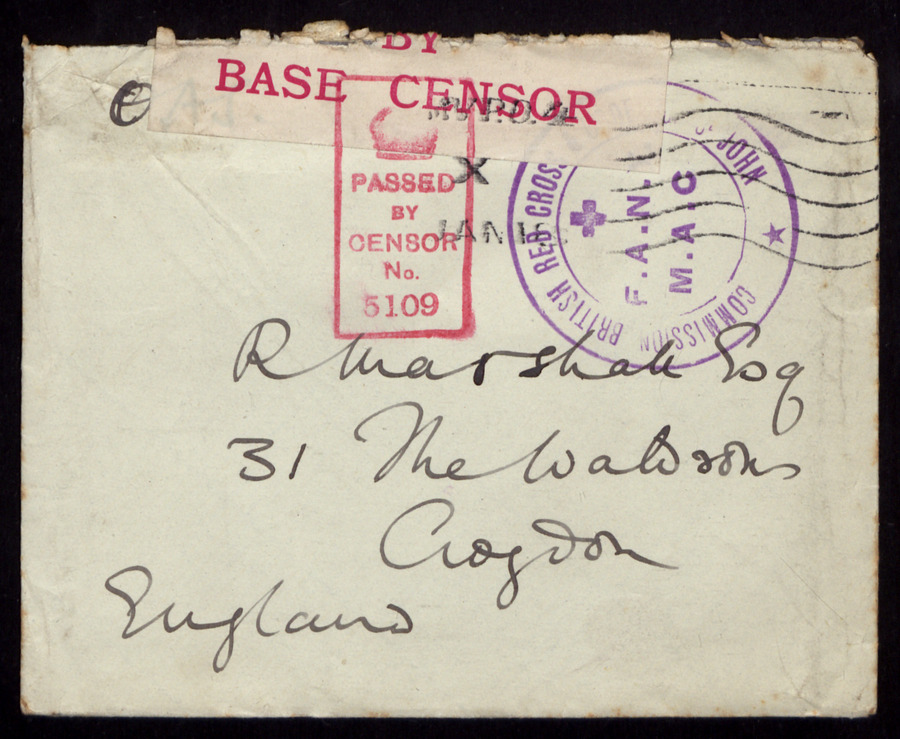 BY
BASE CENSOR
X
JAN
PASSED
BY
CENSOR
No.
5109
BRITISH RED CROSS
JOHN
COMMISSION
F.A.N.
M.A.C
R Marshall Esq
31 The Waldrons
Croydon
England